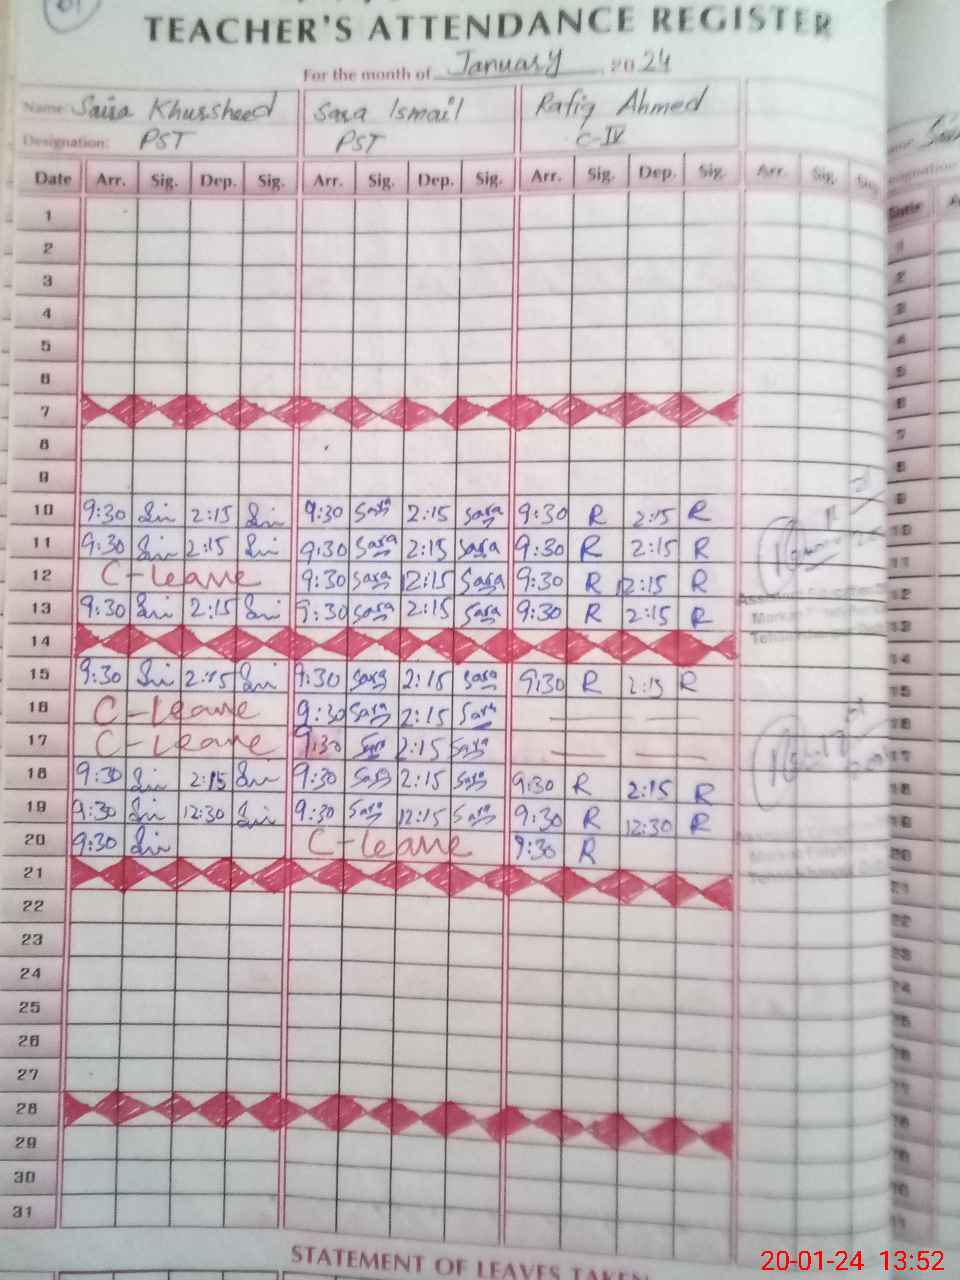 01
TEACHER'S ATTENDANCE REGISTER
For the month of January, 2024
Name: Saira Khursheed Sara Ismail Rafiq Ahmed
Designation: PST PST C-IV
Date Arr. Sig. Dep. Sig. Arr. Sig. Dep. Sig. Arr. Sig. Dep. Sig. Arr. Sig. Sig.
1
2
3
4
5
6
7
8
9
10 9:30 2:15 9:30 Sara 2:15 Sara 9:30 R 2:15 R
11 9:30 2:15 9:30 Sara 2:15 Sara 9:30 R 2:15 R
12 C-leave 9:30 Sara 12:15 Sara 9:30 R 12:15 R
13 9:30 2:15 9:30 Sara 2:15 Sara 9:30 R 2:15 R
14
15 9:30 2:15 9:30 Sara 2:15 Sara 9:30 R 2:15 R
16 C-Leave 9:30 Sara 2:15 Sara — —
17 C-Leave 9:30 Sara 2:15 Sara — —
18 9:30 2:15 9:30 Sara 2:15 Sara 9:30 R 2:15 R
19 9:30 12:30 9:30 Sara 12:15 Sara 9:30 R 12:30 R
20 9:30 C-leave 9:30 R
21
22
23
24
25
26
27
28
29
30
31
STATEMENT OF LEAVES TAKEN
20-01-24 13:52